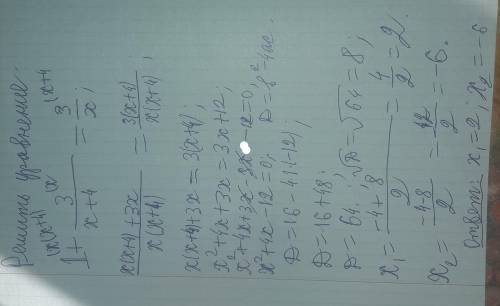 Решить уравнение:
1 + 3/(x+4) = 3/x;
(x(x+4)+3x)/(x(x+4)) = 3(x+4)/(x(x+4));
x(x+4)+3x = 3(x+4);
x²+4x+3x = 3x+12;
x²+4x+3x-3x-12=0;
x²+4x-12=0; D=b²-4ac.
D=16-4·1·(-12);
D=16+48;
D=64; √D=√64=8;
x₁ = (-4+8)/2 = 4/2 = 2.
x₂ = (-4-8)/2 = -12/2 = -6.
Ответ: x₁=2; x₂=-6